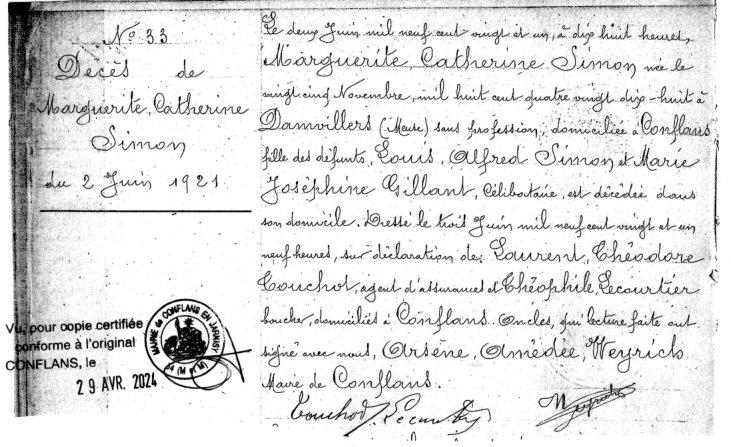 N° 33
Décès de
Marguerite, Catherine
Simon
du 2 Juin 1921.
Le deux Juin mil neuf cent vingt et un, à dix huit heures,
Marguerite, Catherine Simon née le
vingt cinq Novembre, mil huit cent quatre vingt dix-huit à
Damvillers (Meuse) sans profession, domiciliée à Conflans
fille des défunts, Louis, Alfred Simon et Marie
Joséphine Gillant, Célibataire, est décédée dans
son domicile. Dressé le trois Juin mil neuf cent vingt et un
neuf heures, sur déclaration de Laurent, Théodore
Couchot, agent d'assurances et Théophile, Lecourtier
boucher, domiciliés à Conflans. Oncles, qui lecture faite ont
signé avec nous, Arsène, Amédée, Weyrich
Maire de Conflans.
Couchot Lecourtier
Vu, pour copie certifiée
conforme à l'original
CONFLANS, le
29 AVR. 2024
MAIRIE de CONFLANS EN JARNISY
54 (M et M)